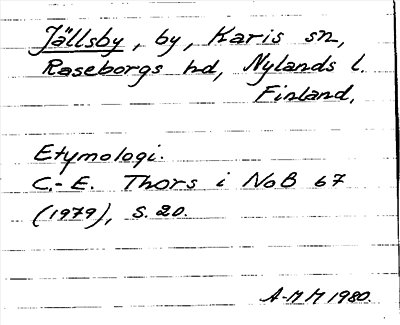 Jällsby, by, Karis sn,
Raseborgs hd, Nylands l.
Finland.
Etymologi.
C.-E. Thors i NoB 67
(1979), s. 20.
A-M M 1980.